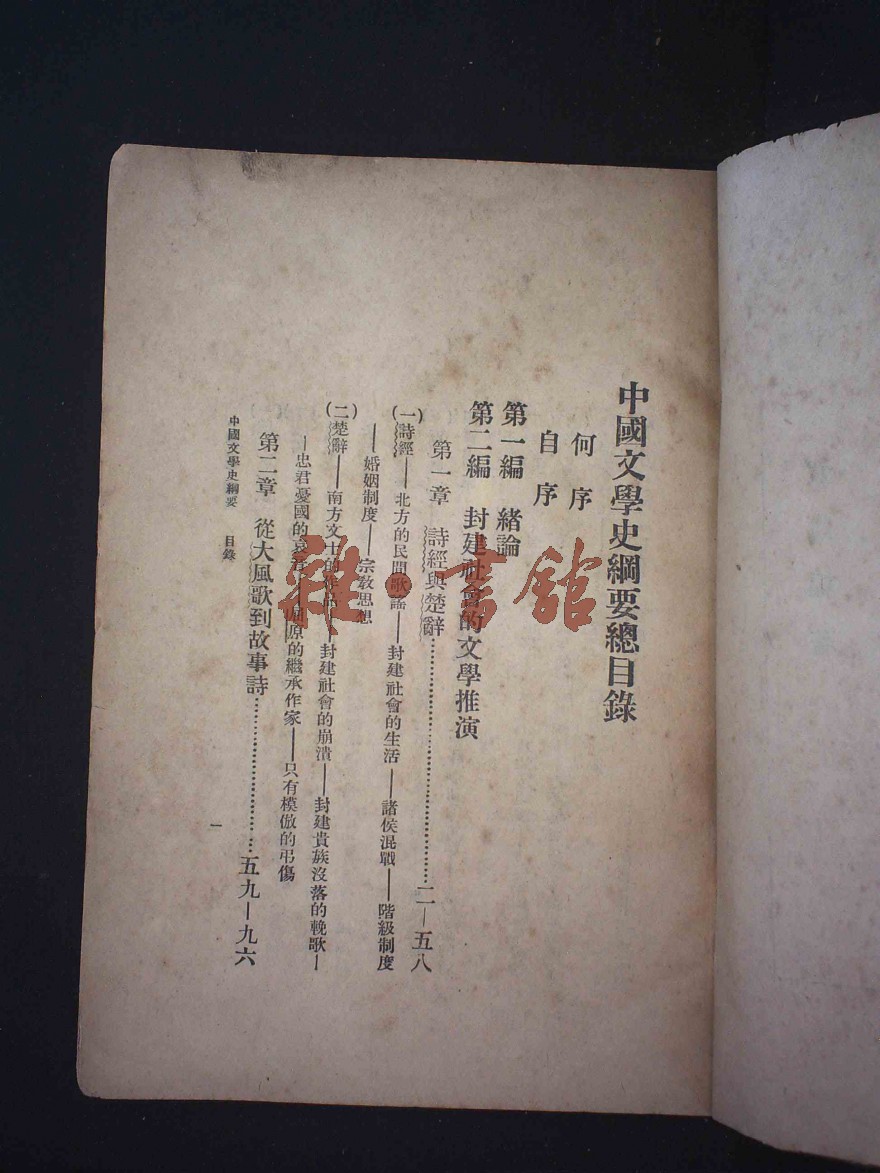 中國文學史綱要總目錄
何序
自序
第一編 緒論
第二編 封建社會的文學推演
第一章 詩經與楚辭……二一－五八
(一)詩經——北方的民間歌謠——封建社會的生活——諸侯混戰——階級制度
——婚姻制度——宗教思想
(二)楚辭——南方文士的作品——封建社會的崩潰——封建貴族沒落的輓歌—
—忠君憂國的哀 屈原的繼承作家——只有模倣的弔傷
第二章 從大風歌到故事詩……五九－九六
中國文學史綱要 目錄
一
雜·書館